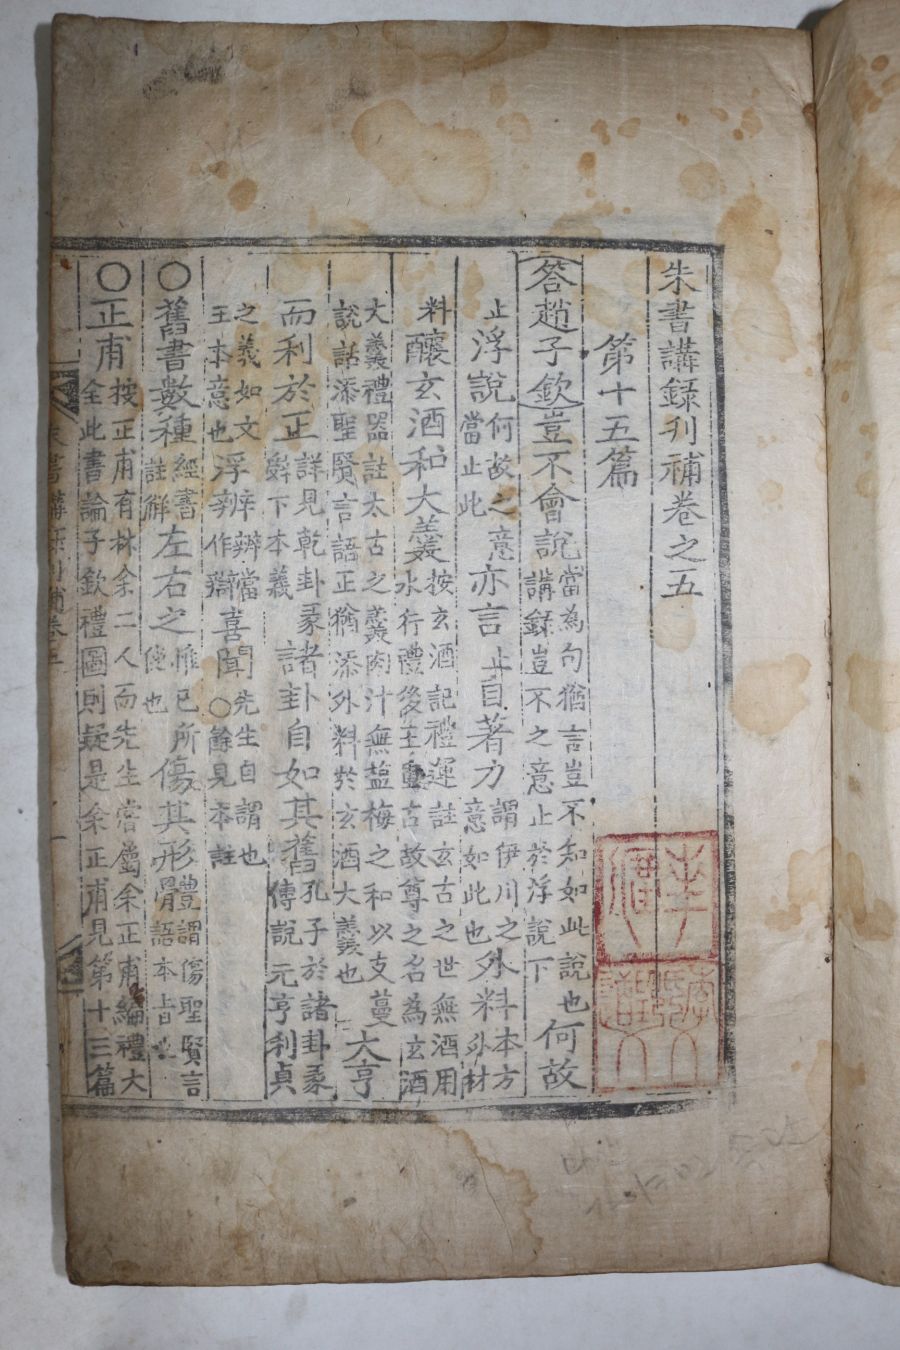 朱書講錄刋補卷之五
第十五篇
答趙子欽豈不會說當為句猶言豈不知如此說也講錄豈不之意止於浮說下何故
止浮說何故之意當止此亦言止自著力謂伊川之意如此也外料本方外材
料釀玄酒和大羹按玄酒記禮運註玄古之世無酒用水行禮後王重古故尊之名為玄酒
大羹禮器註太古之羹肉汁無盐梅之和以支蔓
說話添聖賢言語正猶添外料於玄酒大羹也大亨
而利於正詳見乾卦彖下本義諸卦自如其舊孔子於諸卦彖傳說元亨利貞
之義如文王本意也浮辨辨當作辯喜聞先生自謂也○餘見本註
○舊書數種經書註解左右之惟已所使也傷其形體謂傷聖賢言語本旨
○正甫按正甫有林余二人而先生嘗屬余正甫編禮大全此書論子欽禮圖則疑是余正甫見第十三篇
朱書講錄刋補卷五 一